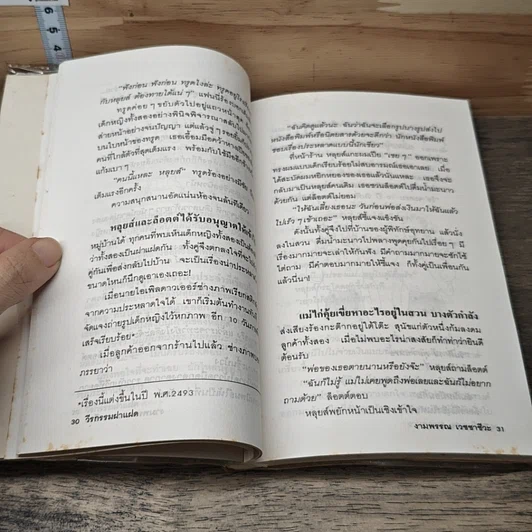 6
5
4
"ฟังก่อน ฟังก่อน ทรูดใจ๋จ๋ะ
กับหลุยส์ ต้องทายได้แน่ ๆ" แฟนนี่ร้อง
ทรูดค่อย ๆ ขยับตัวไปอยู่แถวหน้าสุด
เด็กหญิงทั้งสองอย่างพินิจพิจารณา
ส่ายหน้าอย่างจนปัญญา แต่แล้วจู่ ๆ รอยยิ้ม
บนใบหน้าของทรูด เธอเอื้อมมือคว้าหางเปีย
คนที่ใกล้ตัวที่สุดเต็มแรง พร้อมกับใช้มืออีกข้าง
แก้มเบา ๆ
"คนนี้แหละ หลุยส์" ทรูดร้องอย่างมีชัย
เต็มแรงอีกครั้ง
ความสนุกสนานอัดแน่นห้องจนล้นทีเดียว
หลุยส์และล็อตต์ได้รับอนุญาตให้
หมู่บ้านได้ ทุกคนที่พบเห็นเด็กหญิงทั้งสอง
ว่าทั้งสองเป็นฝาแฝดกัน ทั้งคู่จึงตกลงใจที่จะ
คู่กันเพื่อส่งกลับไปบ้าน จะเป็นเรื่องน่าประหลาด
ขนาดไหนก็นึกดูเอาเองเถอะ!
เมื่อนายไอเพิลดาวเออร์ช่างภาพเรียกสติ
จากความประหลาดใจได้ เขาก็เริ่มต้นทำงาน
จัดแจงถ่ายรูปเด็กหญิงไว้หกภาพ อีก 10 วัน
เสร็จเรียบร้อย*
เมื่อลูกค้าออกจากร้านไปแล้ว ช่างภาพ
ภรรยาว่า
*เรื่องนี้แต่งขึ้นในปี พ.ศ.2493
30 วีรกรรมฝาแฝด
"ฉันคิดดูแล้วนะ ฉันว่าฉันจะเลือกรูปบางรูปส่งไป
หนังสือพิมพ์หรือนิตยสารด้วยจะดีกว่า หนังสือพิมพ์
ชอบเรื่องประหลาดแบบนี้นักเชียว"
ที่หน้าร้าน หลุยส์แกะผมเปีย "เชย ๆ" ออกเพราะ
ทรงผมแบบเด็กเรียบร้อยไม่สบอารมณ์เธอเอาเลย เมื่อ
ได้สะบัดผมหยิกหยองของเธอแล้วนั่นแหละ เธอจึงจะ
กลับมาเป็นหลุยส์คนเดิม เธอชวนล็อตต์ไปดื่มน้ำมะนาว
ด้วยกัน แต่ล็อตต์ไม่ยอม
"ให้ฉันเลี้ยงเธอนะ วันก่อนพ่อส่งเงินมาให้ฉันแล้ว
ไปเร็ว ๆ เข้าเถอะ" หลุยส์แจงแข็งขัน
ทั้งคู่จึงตรงไปที่บ้านของผู้พิทักษ์อุทยาน แล้วนั่ง
ลงในสวน ดื่มน้ำมะนาวไปพลางพูดคุยกันไปเรื่อย ๆ มี
เรื่องมากมายจะเล่าให้กันฟัง มีคำถามมากมายจะซักไซ้
ไต่ถาม มีคำตอบมากมายให้ชี้แจง ก็ทั้งคู่เป็นเพื่อนกัน
แล้วนี่นา!
แม่ไก่คุ้ยเขี่ยหาอะไรอยู่ในสวน บางตัวกำลัง
ส่งเสียงร้องกะต๊ากอยู่ใต้โต๊ะ สุนัขแก่ตัวหนึ่งก้มลงดม
ลูกค้าทั้งสอง เมื่อไม่พบอะไรน่าสงสัยก็ทำท่าว่ายินดี
ต้อนรับ
"พ่อของเธอตายนานหรือยังจ๊ะ" หลุยส์ถามล็อตต์
"ฉันก็ไม่รู้ แม่ไม่เคยพูดถึงพ่อเลยและฉันก็ไม่อยาก
ถามด้วย" ล็อตต์ตอบ
หลุยส์พยักหน้าเป็นเชิงเข้าใจ
งามพรรณ เวชชาชีวะ 31